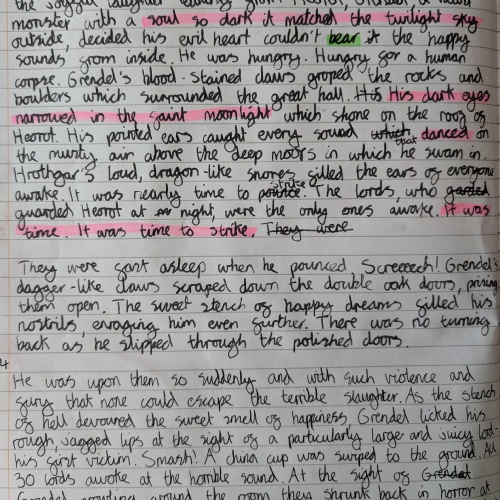 monster with a soul so dark it matched the twilight sky
outside, decided his evil heart couldn't bear it the happy
sounds from inside. He was hungry. Hungry for a human
corpse. Grendel's blood-stained claws groped the rocks and
boulders which surrounded the great hall. His His dark eyes
narrowed in the faint moonlight which shone on the roof of
Heorot. His pointed ears caught every sound which that danced on
the musty air above the deep moors in which he swam in.
Hrothgar's loud, dragon-like snores filled the ears of everyone
awake. It was nearly time to pounce. strike The lords, who garded
guarded Heorot at night, were the only ones awake. It was
time. It was time to strike. They were
They were fast asleep when he pounced. Screeeech! Grendel's
dagger-like claws scraped down the double oak doors, prising
them open. The sweet stench of happy dreams filled his
nostrils, enraging him even further. There was no turning
back as he slipped through the polished doors.
4
He was upon them so suddenly and with such violence and
fury that none could escape the terrible slaughter. As the stench
of hell devoured the sweet smell of happiness, Grendel licked his
rough, jagged lips at the sight of a particularly large and juicy lord-
his first victim. Smash! A china cup was surped to the ground. All
30 lords awoke at the horrible sound. At the sight of Grendel
Grendel prowling around the room they shrunk back in horror at